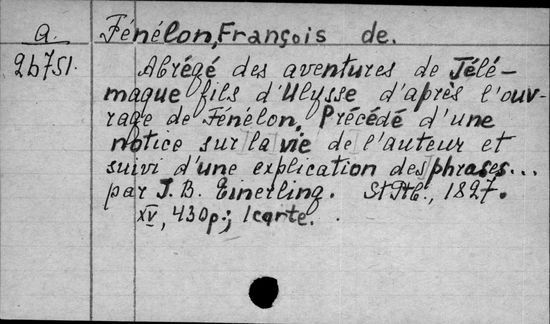 a. Fénélon, François de.
26751. Abrégé des aventures de Télé-
maque fils d'Ulysse d'après l'ouv-
rage de Fénélon. Précédé d'une
notice sur la vie de l'auteur et
suivi d'une explication des phrases...
par J. B. Einerling. St Ptb., 1827.
XV, 430 p.; 1 carte.